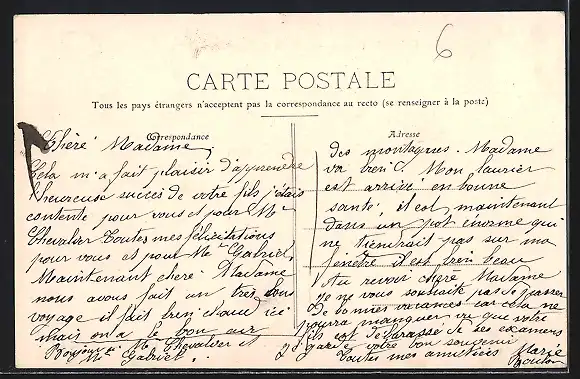 6
CARTE POSTALE
Tous les pays étrangers n'acceptent pas la correspondance au recto (se renseigner à la poste)
Correspondance
Chère Madame,
Cela m'a fait plaisir d'apprendre
l'heureuse succès de votre fils j'étais
contente pour vous et pour Mr
Chevalier Toutes mes félicitations
pour vous et pour Mr Gabriel,
Maintenant chère Madame
nous avons fait un très bon
voyage il fait bien chaud ici
mais on a le bon air
Bonjour à Mr Chevalier et
Mr Gabriel.
Adresse
des montagnes. Madame
va bien. Mon laurier
est arrivé en bonne
santé, il est maintenant
dans un pot énorme qui
ne tiendrait pas sur ma
fenêtre il est bien beau
Au revoir chère Madame
Je ne vous souhaite pas de passer
de bonnes vacances car cela ne
pourra manquer vu que votre
fils est débarassé de ses examens
Je garde votre bon souvenir
Toutes mes amitiées Marie